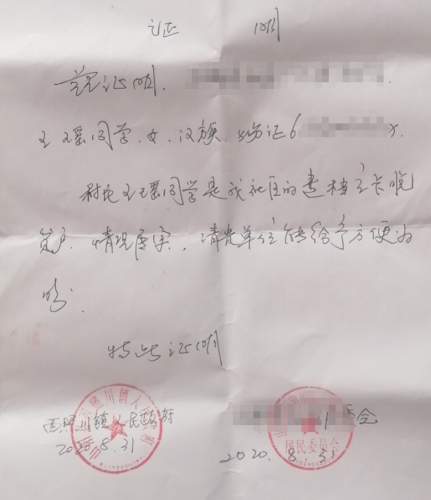 证 明
兹证明
王瑶同学,女,汉族,身份证6
对于王瑶同学是我社区的建档立卡脱
贫户,情况属实,请贵单位能给予方便为
盼。
特此证明
西照川镇人民政府
2020.8.31
居民委员会
2020.8.31